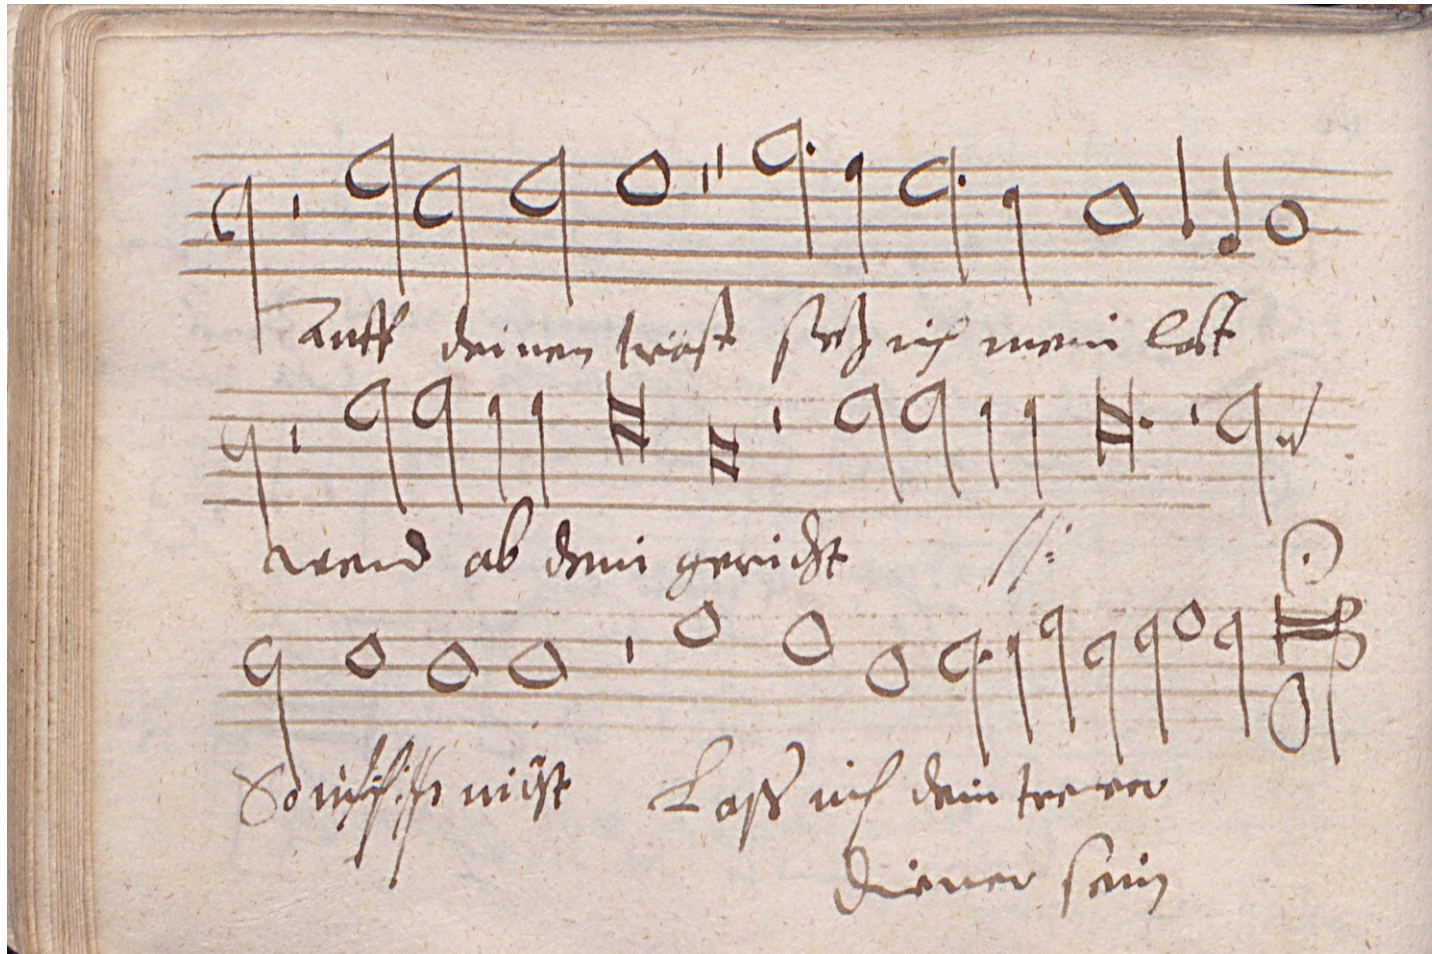 Auff deinen trost setz ich mein last
wend ab dein gericht //:
So nicht Laß mich dein trewer
diener sein